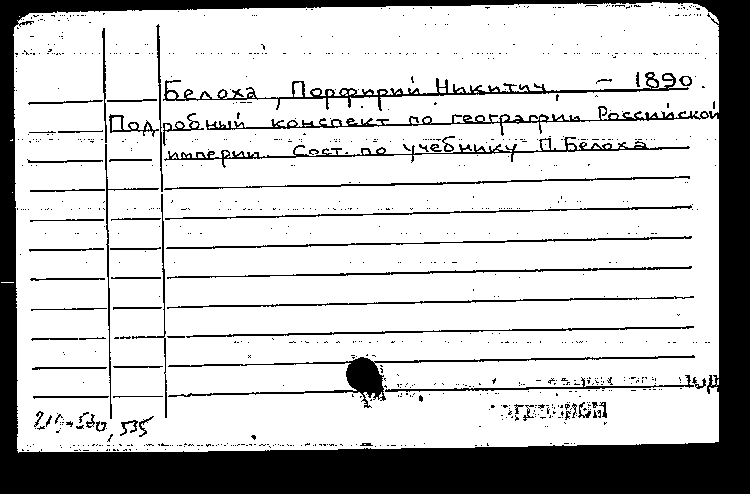 Белоха, Порфирий Никитич, – 1890.
Подробный конспект по географии Российской
империи. Сост. по учебнику П. Белоха
535